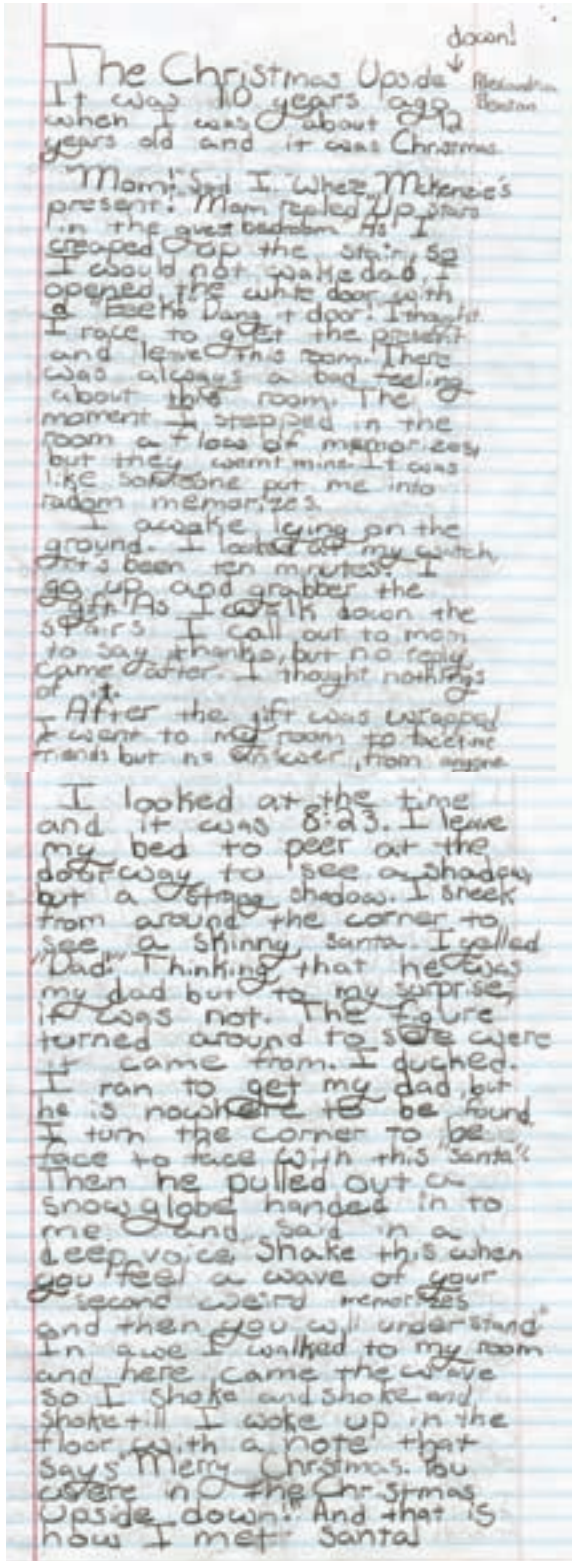 down!
The Christmas Upside ↓
Alexandria
It was 10 years ago
when I was about 12
years old and it was Christmas
"Mom!" Said I. Where Mckenzie's
present! Mom replied "Up stairs
in the guest bedroom. As I
creaped up the stair, so
I would not wake dad, I
opened the white door with
a "Eeek. Dang + door! I thought.
I race to get the present
and leave this room. There
was always a bad feeling
about this room. The
moment I stepped in the
room a flow of memorizes,
but they wernt mine. It was
like someone put me into
radom memorizes.
I awake lying on the
ground. I looked at my watch,
it's been ten minutes. I
go up and grabber the
gift. As I walk down the
stairs I call out to mom
to say thanks, but no reply
came after. I thought nothings
of it.
After the gift was wrapped
I went to my room to facetime
friends but no answer, from anyone
I looked at the time
and it was 8:23. I leave
my bed to peer at the
doorway to see a shadow,
but a strang shadow. I sneek
from around the corner to
see a skinny santa. I yelled
"Dad!" Thinking that he was
my dad but to my surprise,
it was not. The figure
turned around to see were
it came from. I duched.
I ran to get my dad, but
he is nowhere to be found.
I turn the corner to be
face to face with this "santa".
Then he pulled out a
snowglobe handed in to
me. and said in a
deep voice, Shake this when
you feel a wave of your
second weird memorizes
and then you will understand"
In awe I walked to my room
and here came the wave
so I shoke and shoke and
shoke till I woke up in the
floor with a note that
says "Merry Christmas. You
were in the Christmas
Upside down." And that is
how I met Santa